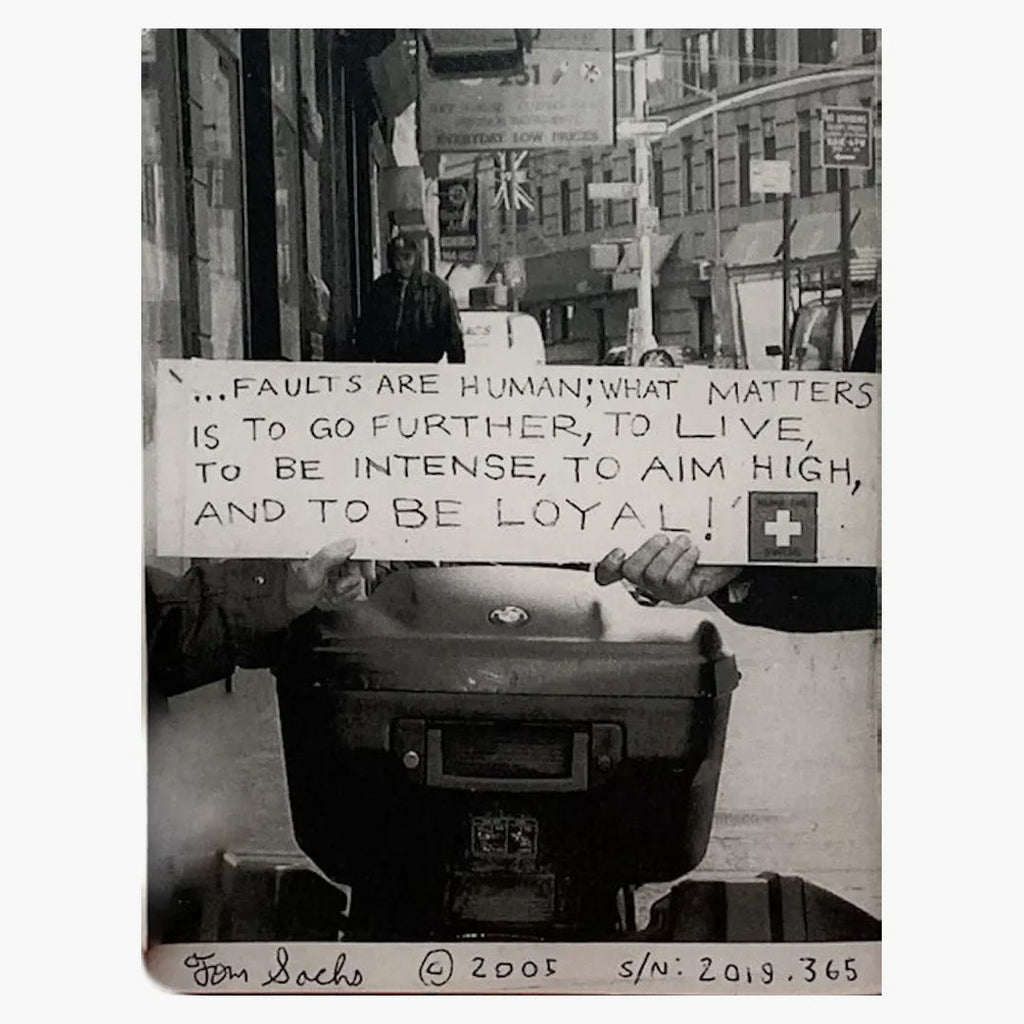 251
EVERYDAY LOW PRICES
NO STANDING
...FAULTS ARE HUMAN; WHAT MATTERS
IS TO GO FURTHER, TO LIVE,
TO BE INTENSE, TO AIM HIGH,
AND TO BE LOYAL!
SWISS
Tom Sachs © 2005 S/N: 2019.365